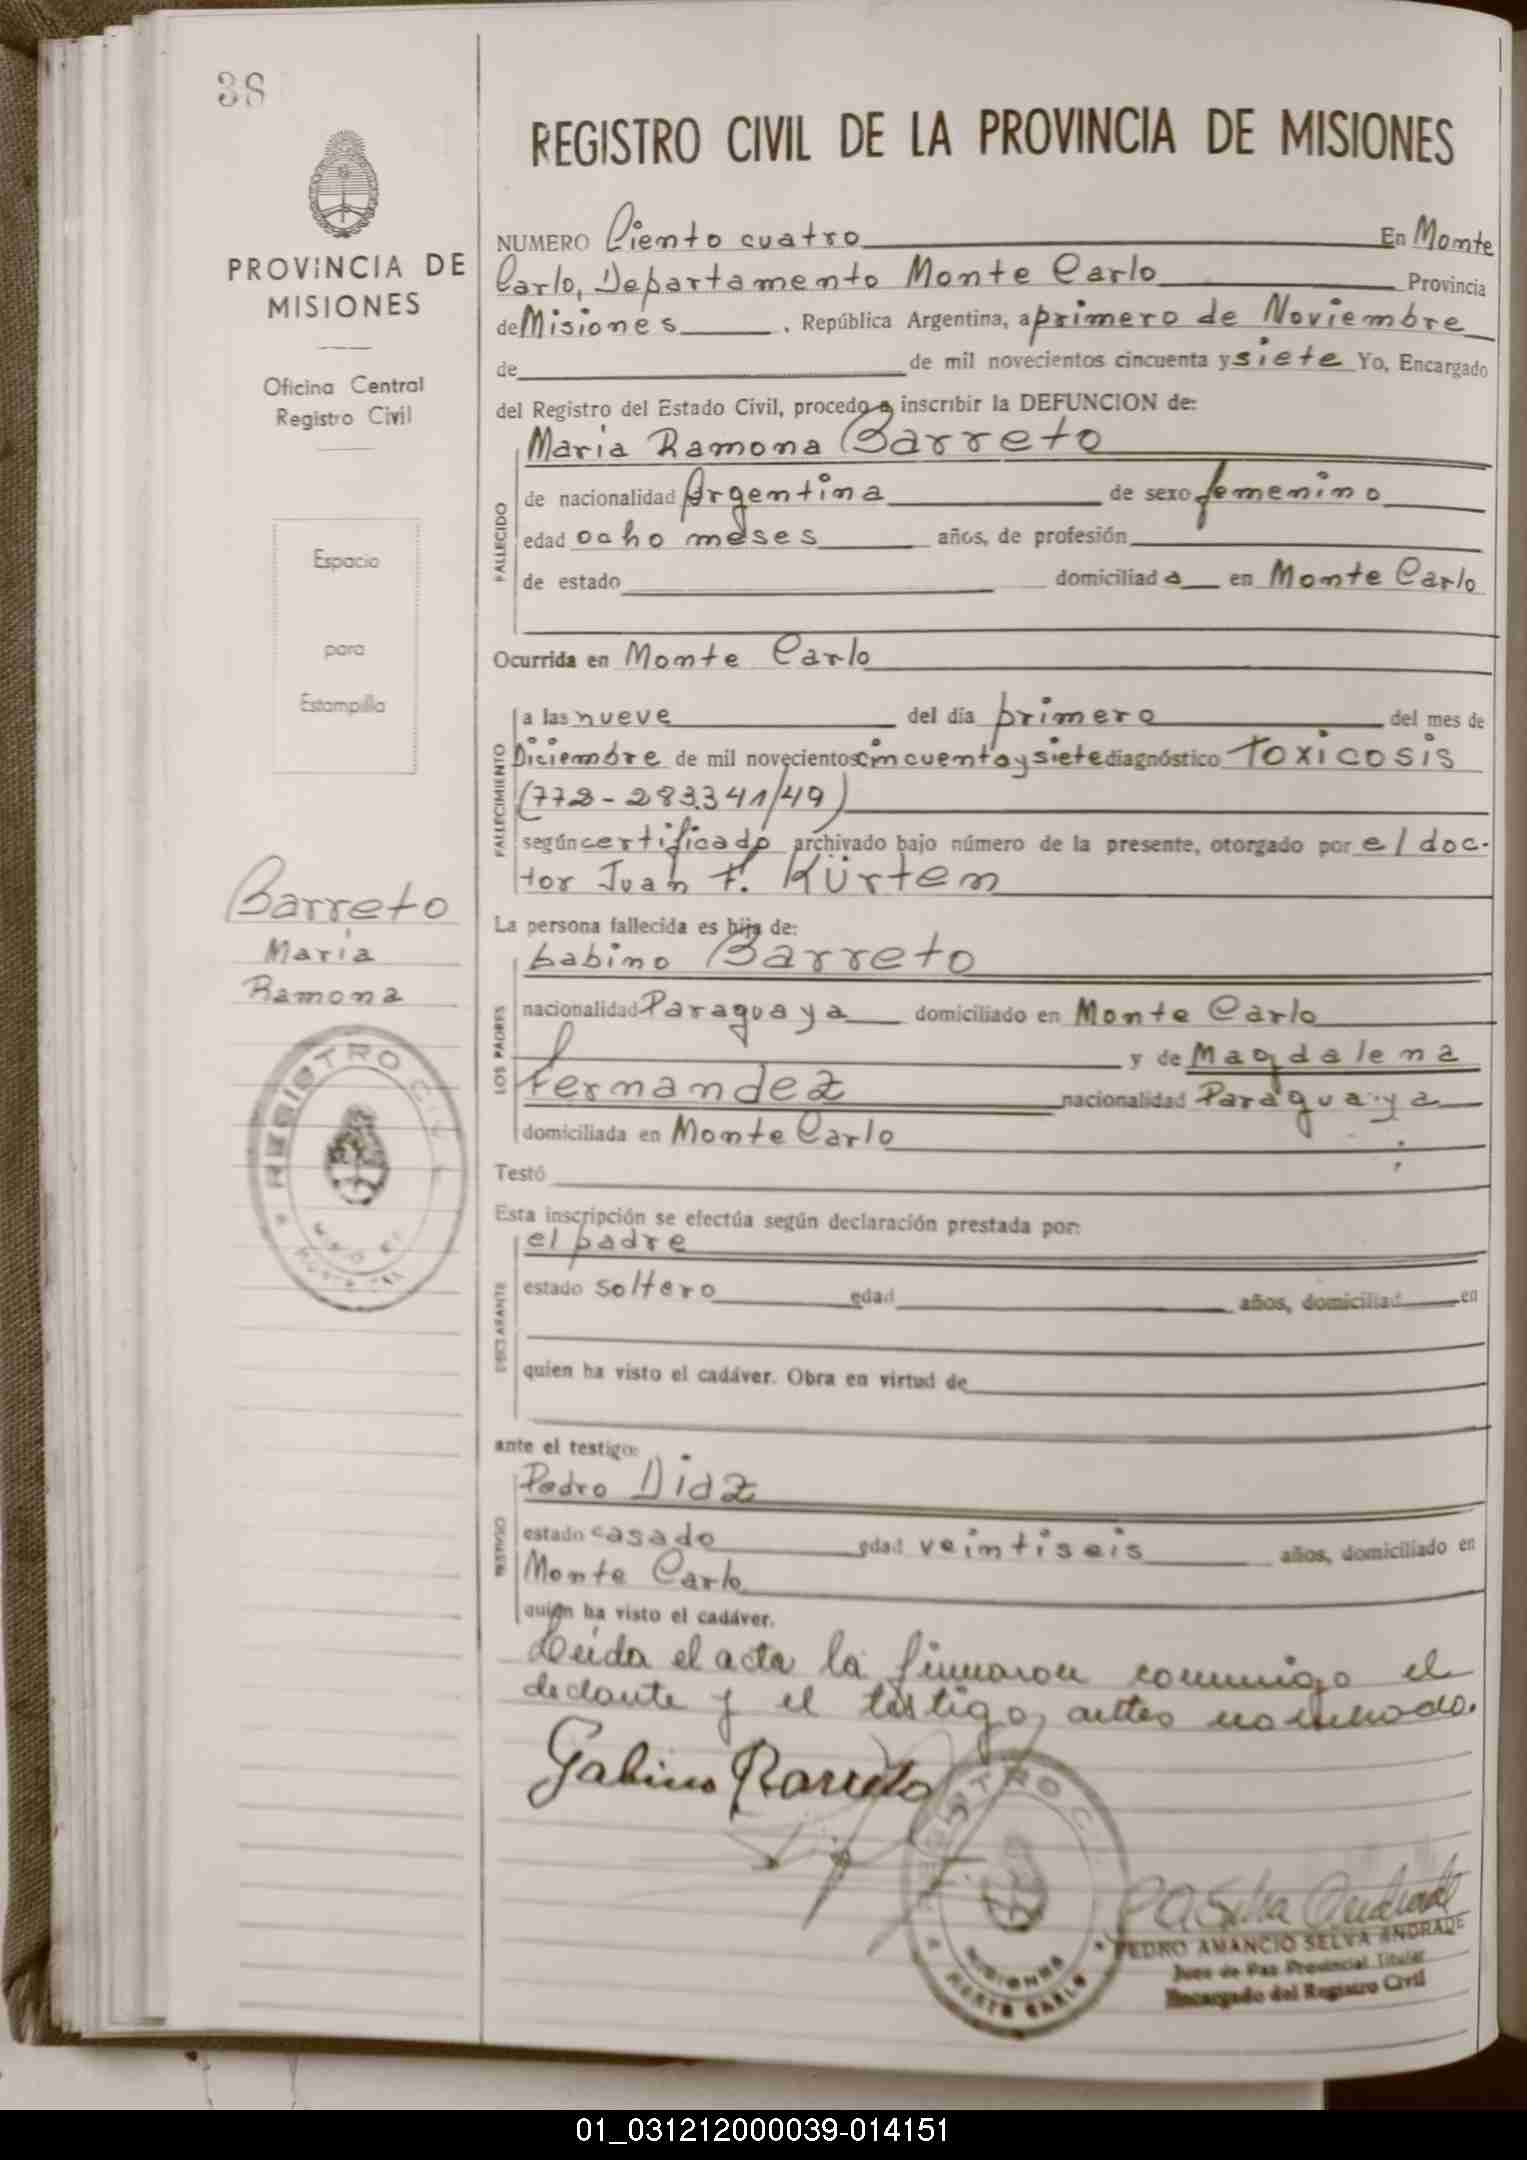 38
REGISTRO CIVIL DE LA PROVINCIA DE MISIONES
PROVINCIA DE
MISIONES
Oficina Central
Registro Civil
Espacio
para
Estampilla
Barreto
Maria
Ramona
REGISTRO CIVIL
NUMERO Ciento cuatro En Monte
Carlo, Departamento Monte Carlo Provincia
de Misiones , República Argentina, a primero de Noviembre
de de mil novecientos cincuenta y siete Yo, Encargado
del Registro del Estado Civil, procedo a inscribir la DEFUNCION de:
Maria Ramona Barreto
FALLECIDO
de nacionalidad Argentina de sexo femenino
edad ocho meses años, de profesión
de estado domiciliad a en Monte Carlo
Ocurrida en Monte Carlo
FALLECIMIENTO
a las nueve del día primero del mes de
Diciembre de mil novecientos cincuenta y siete diagnóstico Toxicosis
(772-283.341/49)
según certificado archivado bajo número de la presente, otorgado por el doc-
tor Juan F. Kürten
La persona fallecida es hija de:
LOS PADRES
Gabino Barreto
nacionalidad Paraguaya domiciliado en Monte Carlo
y de Magdalena
Fernandez nacionalidad Paraguaya
domiciliada en Monte Carlo
Testó
Esta inscripción se efectúa según declaración prestada por:
DECLARANTE
el padre
estado soltero edad años, domiciliad en
quien ha visto el cadáver. Obra en virtud de
ante el testigo:
TESTIGO
Pedro Diaz
estado casado edad veintiseis años, domiciliado en
Monte Carlo
quien ha visto el cadáver.
Leida el acta la firmaron conmigo el
declante y el testigo, antes nombrado.
Gabino Barreto
REGISTRO C
MISIONES
MONTE CARLO
PEDRO AMANCIO SELVA ANDRADE
Juez de Paz Provincial Titular
Encargado del Registro Civil
01_031212000039-014151